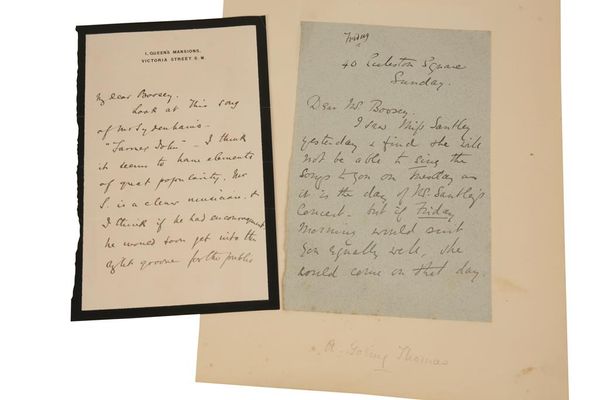 1, QUEENS MANSIONS,
VICTORIA STREET S.W.
My dear Boosey.
Look at this song
of Mr Sydenhams.
"Farmer John" – I think
it seems to have elements
of great popularity. Mr
S. is a clever musician. &
I think if he had encouragement
he would soon get into the
right groove for the public
Friday
40 Eccleston Square
Sunday.
Dear Mr Boosey.
I saw Miss Santley
yesterday & find she will
not be able to sing the
songs to you on Tuesday as
it is the day of Mr Santley's
Concert. but if Friday
Morning would suit
you equally well, she
would come on that day.
A. Goring Thomas